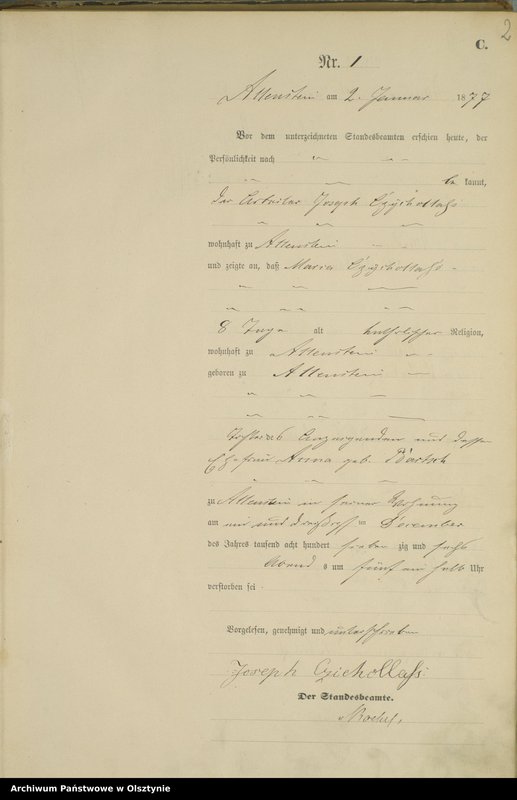 2
C.
Nr. 1
Allenstein am 2. Januar 1877
Vor dem unterzeichneten Standesbeamten erschien heute, der
Persönlichkeit nach
be kannt,
der Arbeiter Joseph
wohnhaft zu Allenstein
und zeigte an, daß Maria
8 Tage alt katholischer Religion,
wohnhaft zu Allenstein
geboren zu Allenstein
Tochter des Anzeigenden und dessen
Ehefrau Anna geb. Bartsch
zu Allenstein in seiner Wohnung
am ein und dreißigsten December
des Jahres tausend acht hundert sieben zig und sechs
Abend s um fünf ein halb Uhr
verstorben sei.
Vorgelesen, genehmigt und unterschrieben
Joseph
Der Standesbeamte.
Archiwum Państwowe w Olsztynie